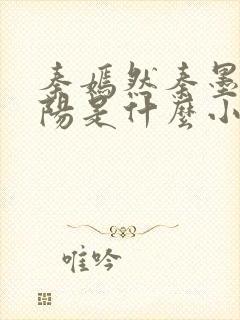 秦嫣然秦墨
陽是什麼小
唯吟